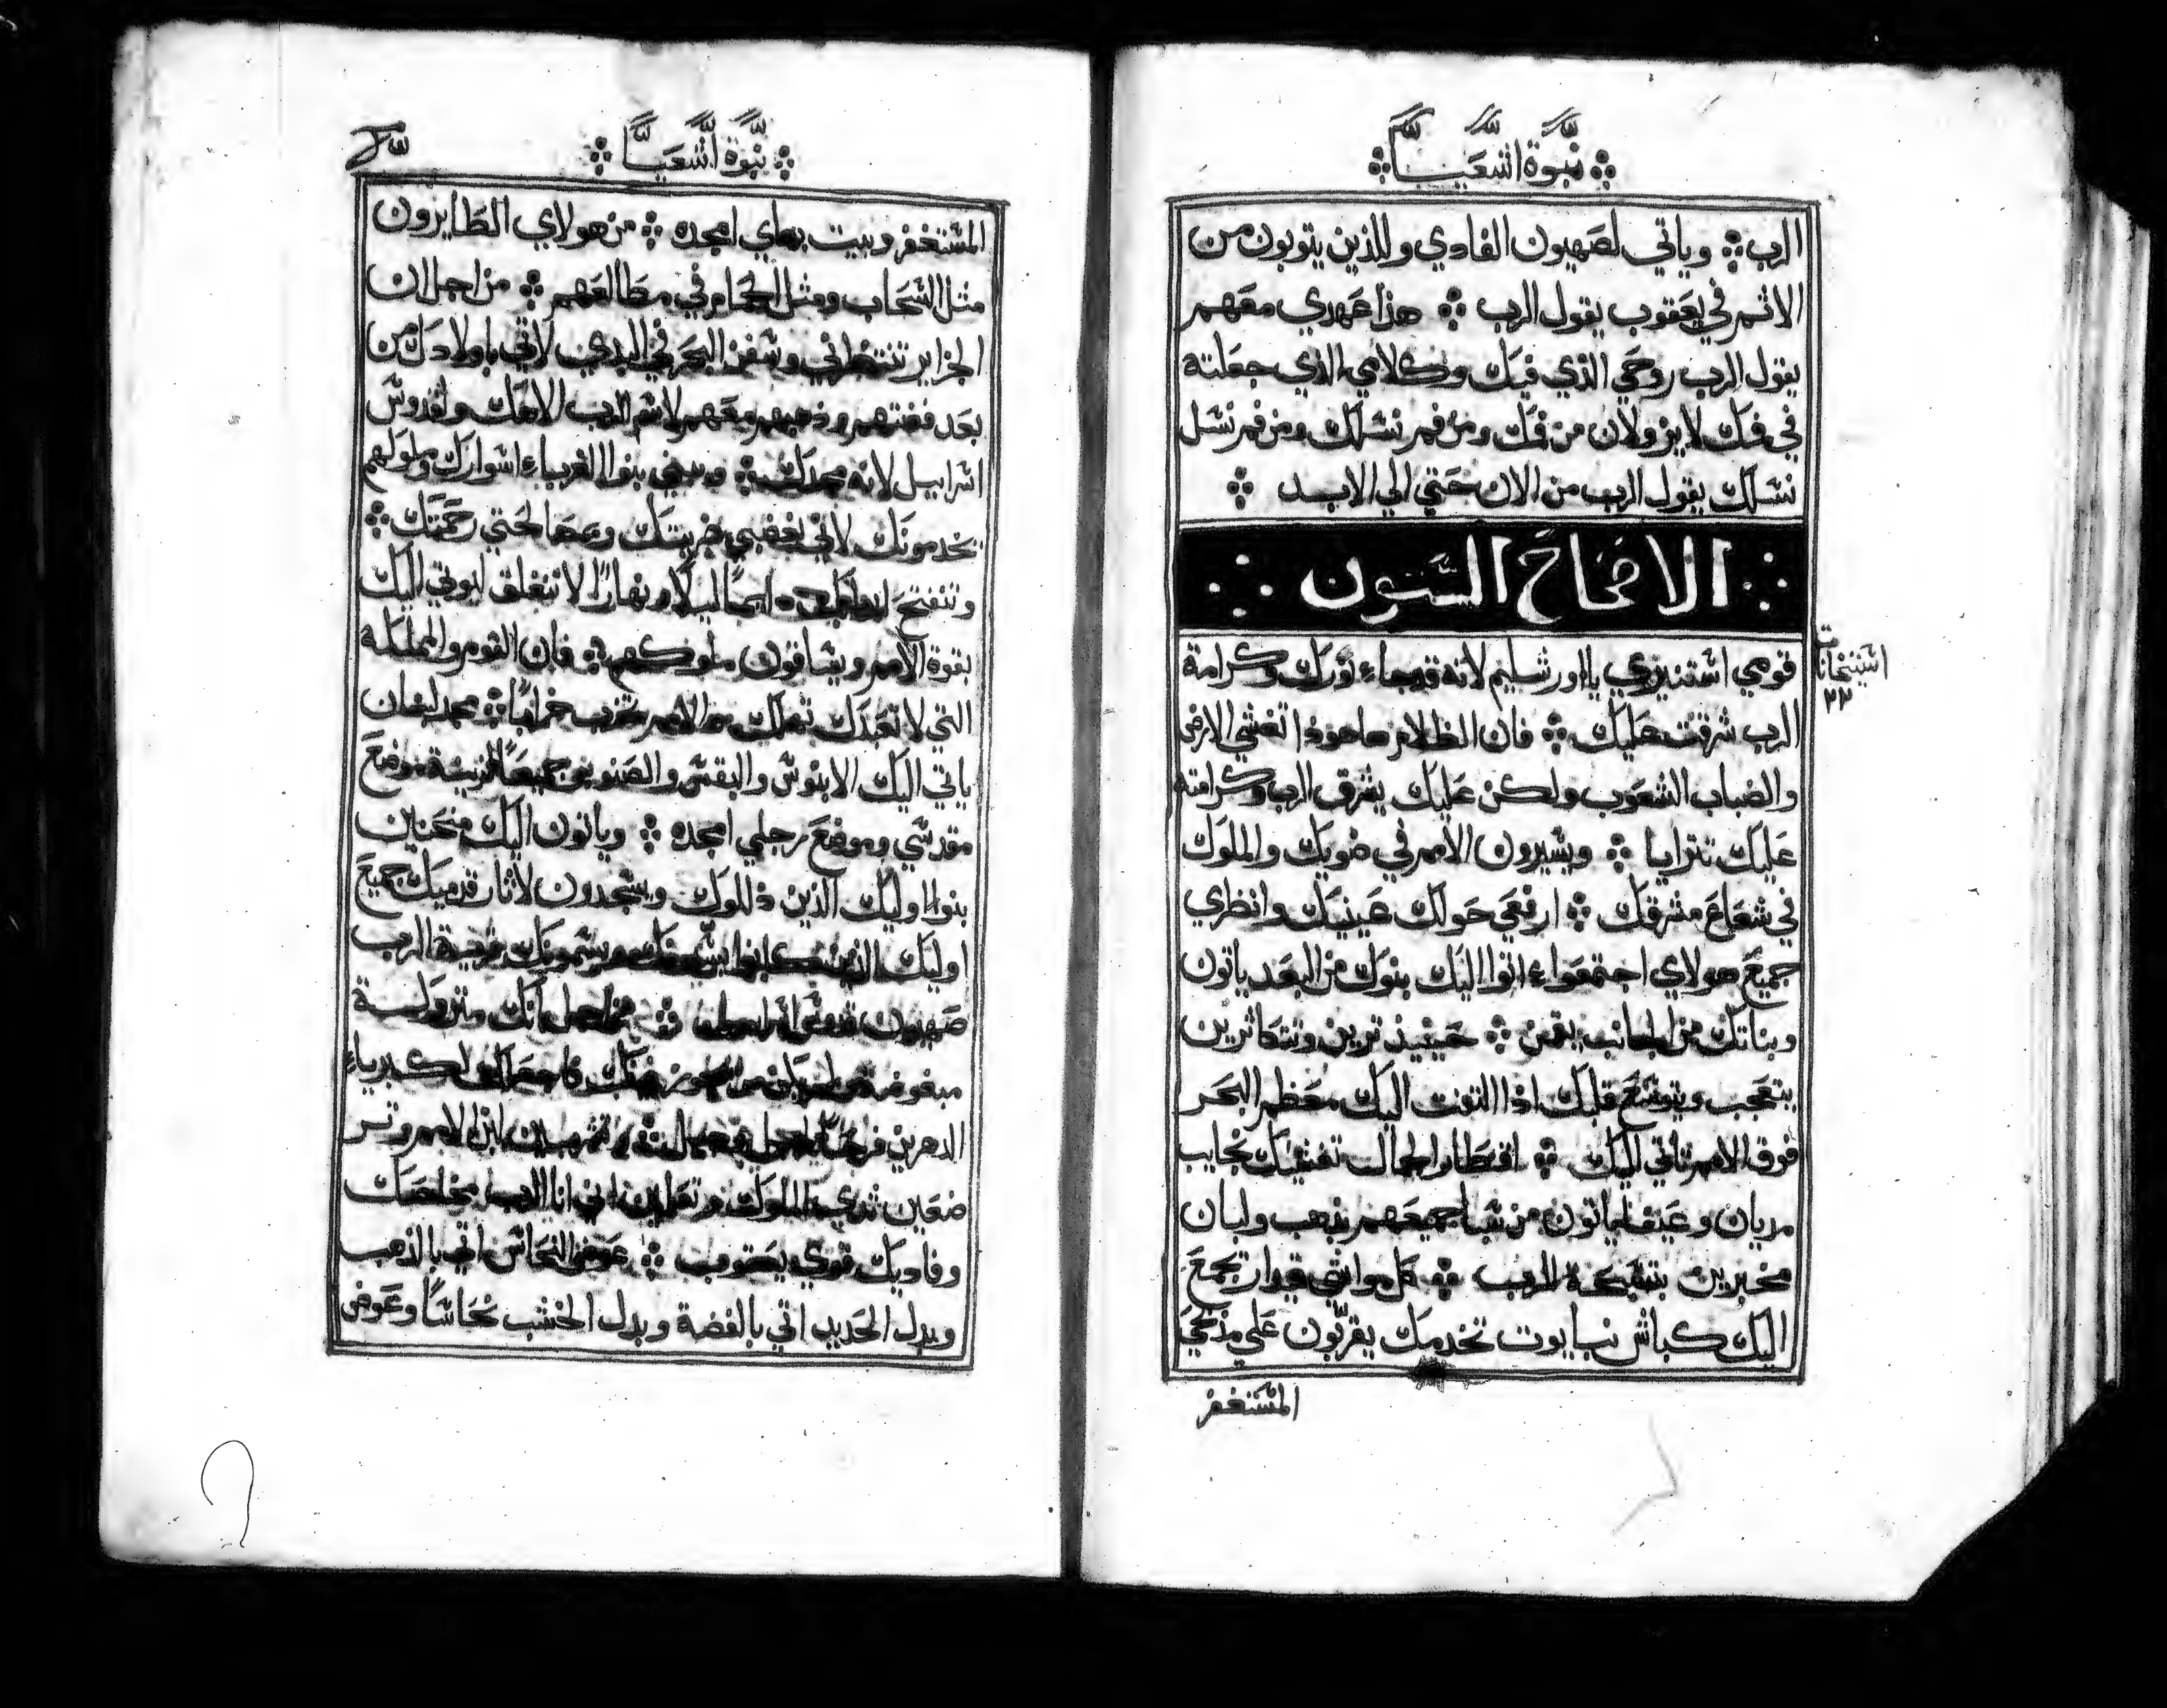 نبوة اشعيا
الرب ❖ وياتي لصهيون الفادي وللذين يتوبون من
الاثم في يعقوب يقول الرب ❖ هذا عهدي معهم
يقول الرب روحي الذي فيك وكلامي الذي جعلته
في فمك لا يزولان من فمك ومن فم نسلك ومن فم نسل
نسلك يقول الرب من الان حتي الي الابد ❖
الاصحاح الستون
قومي استنيري يا اورشليم لانه قد جاء نورك وكرامة
الرب شرقت عليك ❖ فان الظلام ها هوذا تغشي الارض
والضباب الشعوب ولكن عليك يشرق الرب وكرامته
عليك تترايا ❖ ويسيرون الامم في ضويك والملوك
في شعاع مشرقك ❖ ارفعي حولك عينيك وانظري
جميع هولاي اجتمعوا اتوا اليك بنوك من البعد ياتون
وبناتك من الجانب يقمن ❖ حينيذ ترين وتتكاثرين
يتعجب ويتوسع قلبك اذا التفت اليك معظم البحر
قوة الامم تاتي اليك ❖ اقطار الجمال تغشيك نجايب
مديان وعيفا ياتون من سبا جميعهم بذهب ولبان
مخبرين بتسبحة الرب ❖ كل مواشي قيدار تجمع
اليك كباش نبايوت تخدمك يقربون علي مذبحي
المستغفر
استنخانات
٢٢
نبوة اشعيا
المستغفر وبيت بهاي امجده ❖ من هولاي الطايرون
مثل السحاب ومثل الحمام في مطالعهم ❖ من اجل ان
الجزاير تنتظرني وسفن البحر في البدي لاتي باولادك من
بعد فضتهم وذهبهم معهم لاسم الرب الاهك ولقدوس
اسراييل لانه مجدك ❖ ويبني بنوا الغرباء اسوارك وملوكهم
يخدمونك لاني بغضبي ضربتك وبمصالحتي رحمتك ❖
وتنفتح ابوابك دايما ليلا ونهارا لا تنغلق ليوتي اليك
بقوة الامم ويساقون ملوكهم ❖ فان القوم والمملكة
التي لا تعبدك تهلك والامم تخرب خرابا ❖ مجد لبنان
ياتي اليك الابنوس والبقس والصنوبر جميعا لزينة موضع
مقدسي وموضع رجلي امجده ❖ وياتون اليك منحنيين
بنوا اوليك الذين ذللوك ويسجدون لاثار قدميك جميع
اوليك الذين كانوا ويسمونك قرية الرب
صهيون قدوس اسراييل ❖ من اجل انك متروكة
مبغوضة فاجعلك لكبرياء
الدهرين فرحا لجيل فجيل ❖ وتشربين لبن الامم وتر
ضعين ثدي الملوك وتعلمين اني انا الرب مخلصك
وفاديك قوي يعقوب ❖ عوض النحاس اتي بالذهب
وبدل الحديد اتي بالفضة وبدل الخشب نحاسا وعوض